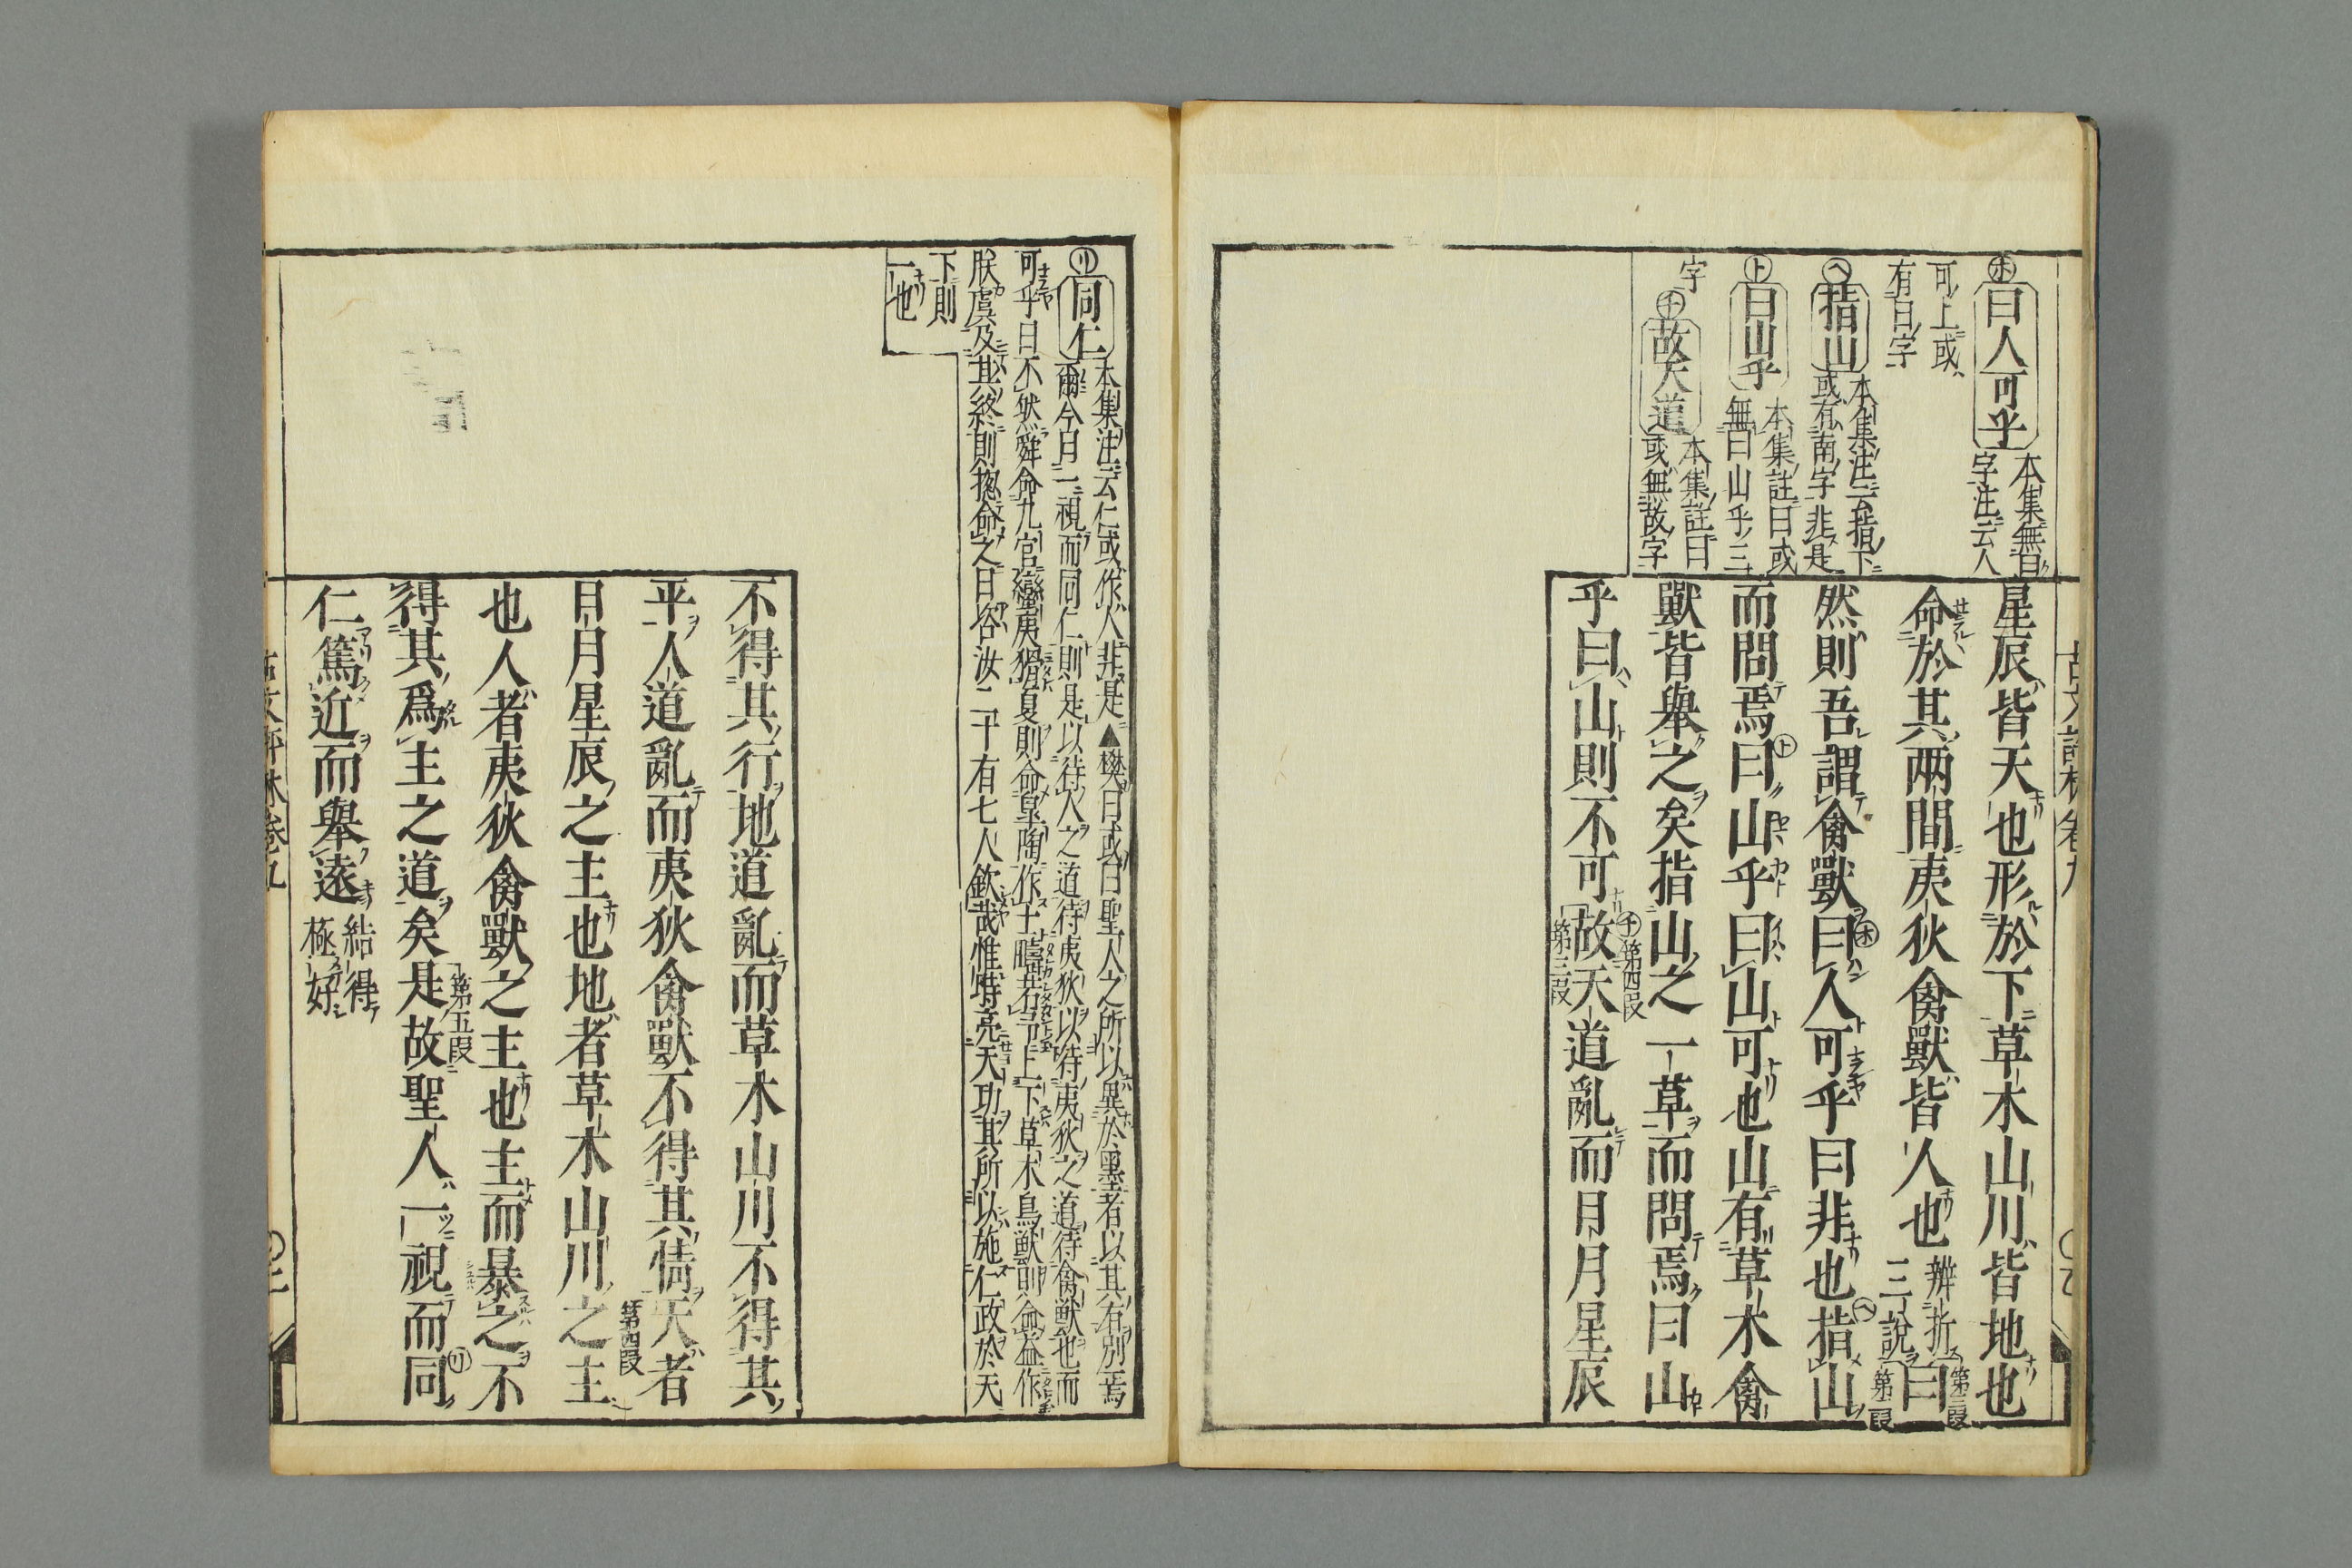 ㋭曰人可乎
本集無曰
字注云人
可上或
有曰字
㋬指山
本集注云指下
或有南字非是
㋣曰山乎
本集註曰或
無曰山乎三
字
㋠故天道
本集註曰
或無故字
星辰皆天也形於下草木山川皆地也
命於其兩間夷狄禽獸皆人也
辨折
三說
第二段
曰
第三段
然則吾謂禽獸曰人可乎曰非也指山
而問焉曰山乎曰山可也山有草木禽
獸皆舉之矣指山之一草而問焉曰山
乎曰山則不可故天道亂而日月星辰
第四段
第三段
㋷同仁
本集注云仁或作人非是▲樊曰或曰聖人之所以異於墨者以其有別焉
爾今曰一視而同仁則是以待人之道待夷狄以待夷狄之道待禽獸也而
可乎曰不然舜命九官蠻夷猾夏則命皐陶作士疇若予上下草木鳥獸則命益作
朕虞及其終則摠命之曰咨汝二十有七人欽哉惟時亮天功其所以施仁政於天
下則
一也
不得其行地道亂而草木山川不得其
平人道亂而夷狄禽獸不得其情天者
第四段
日月星辰之主也地者草木山川之主
也人者夷狄禽獸之主也主而暴之不
得其爲主之道矣是故聖人一視而同
第五段
仁篤近而舉遠
結得
極好